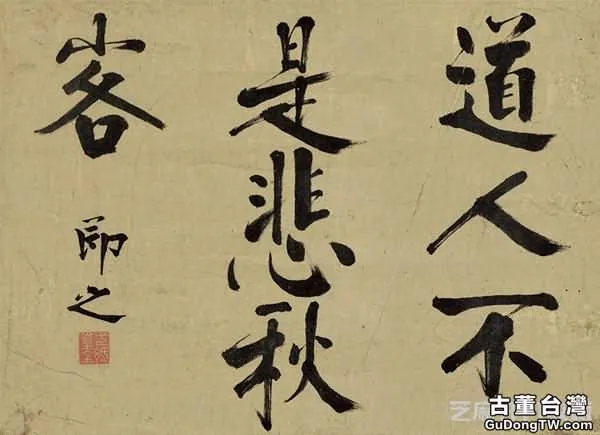 道人不
是悲秋
客
即之
古董台灣
GuDongTW.com